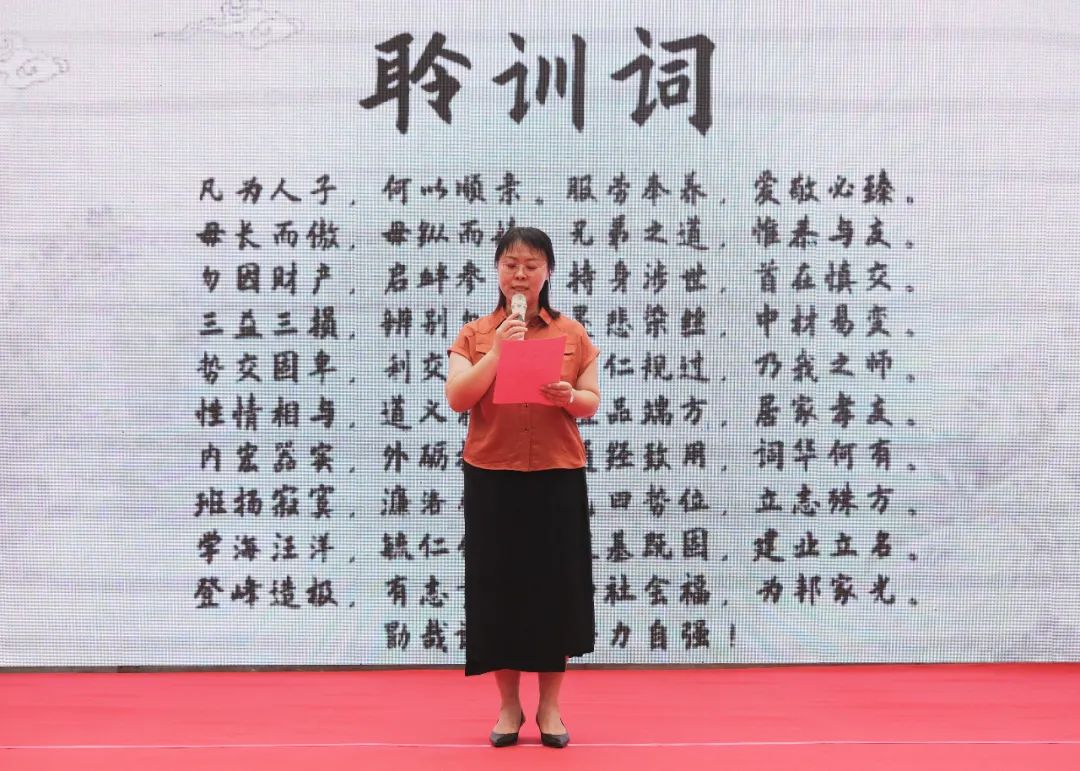 聆训词
凡为人子，何以顺亲。服劳奉养，爱敬必臻。
毋长而傲，毋纵而 兄弟之道，惟恭与友。
勿因财产，启衅参 持身涉世，首在慎交。
三益三损，辨别 悲染丝，中材易变。
势交困卑，利交 仁视过，乃我之师。
性情相与，道义 品端方，居家孝友。
内宏器实，外砺 经致用，词华何有。
班扬寂寞，濂洛 田势位，立志殊方。
学海汪洋，毓仁 基既固，建业立名。
登峰造极，有志 社会福，为邦家光。
勖哉 力自强！